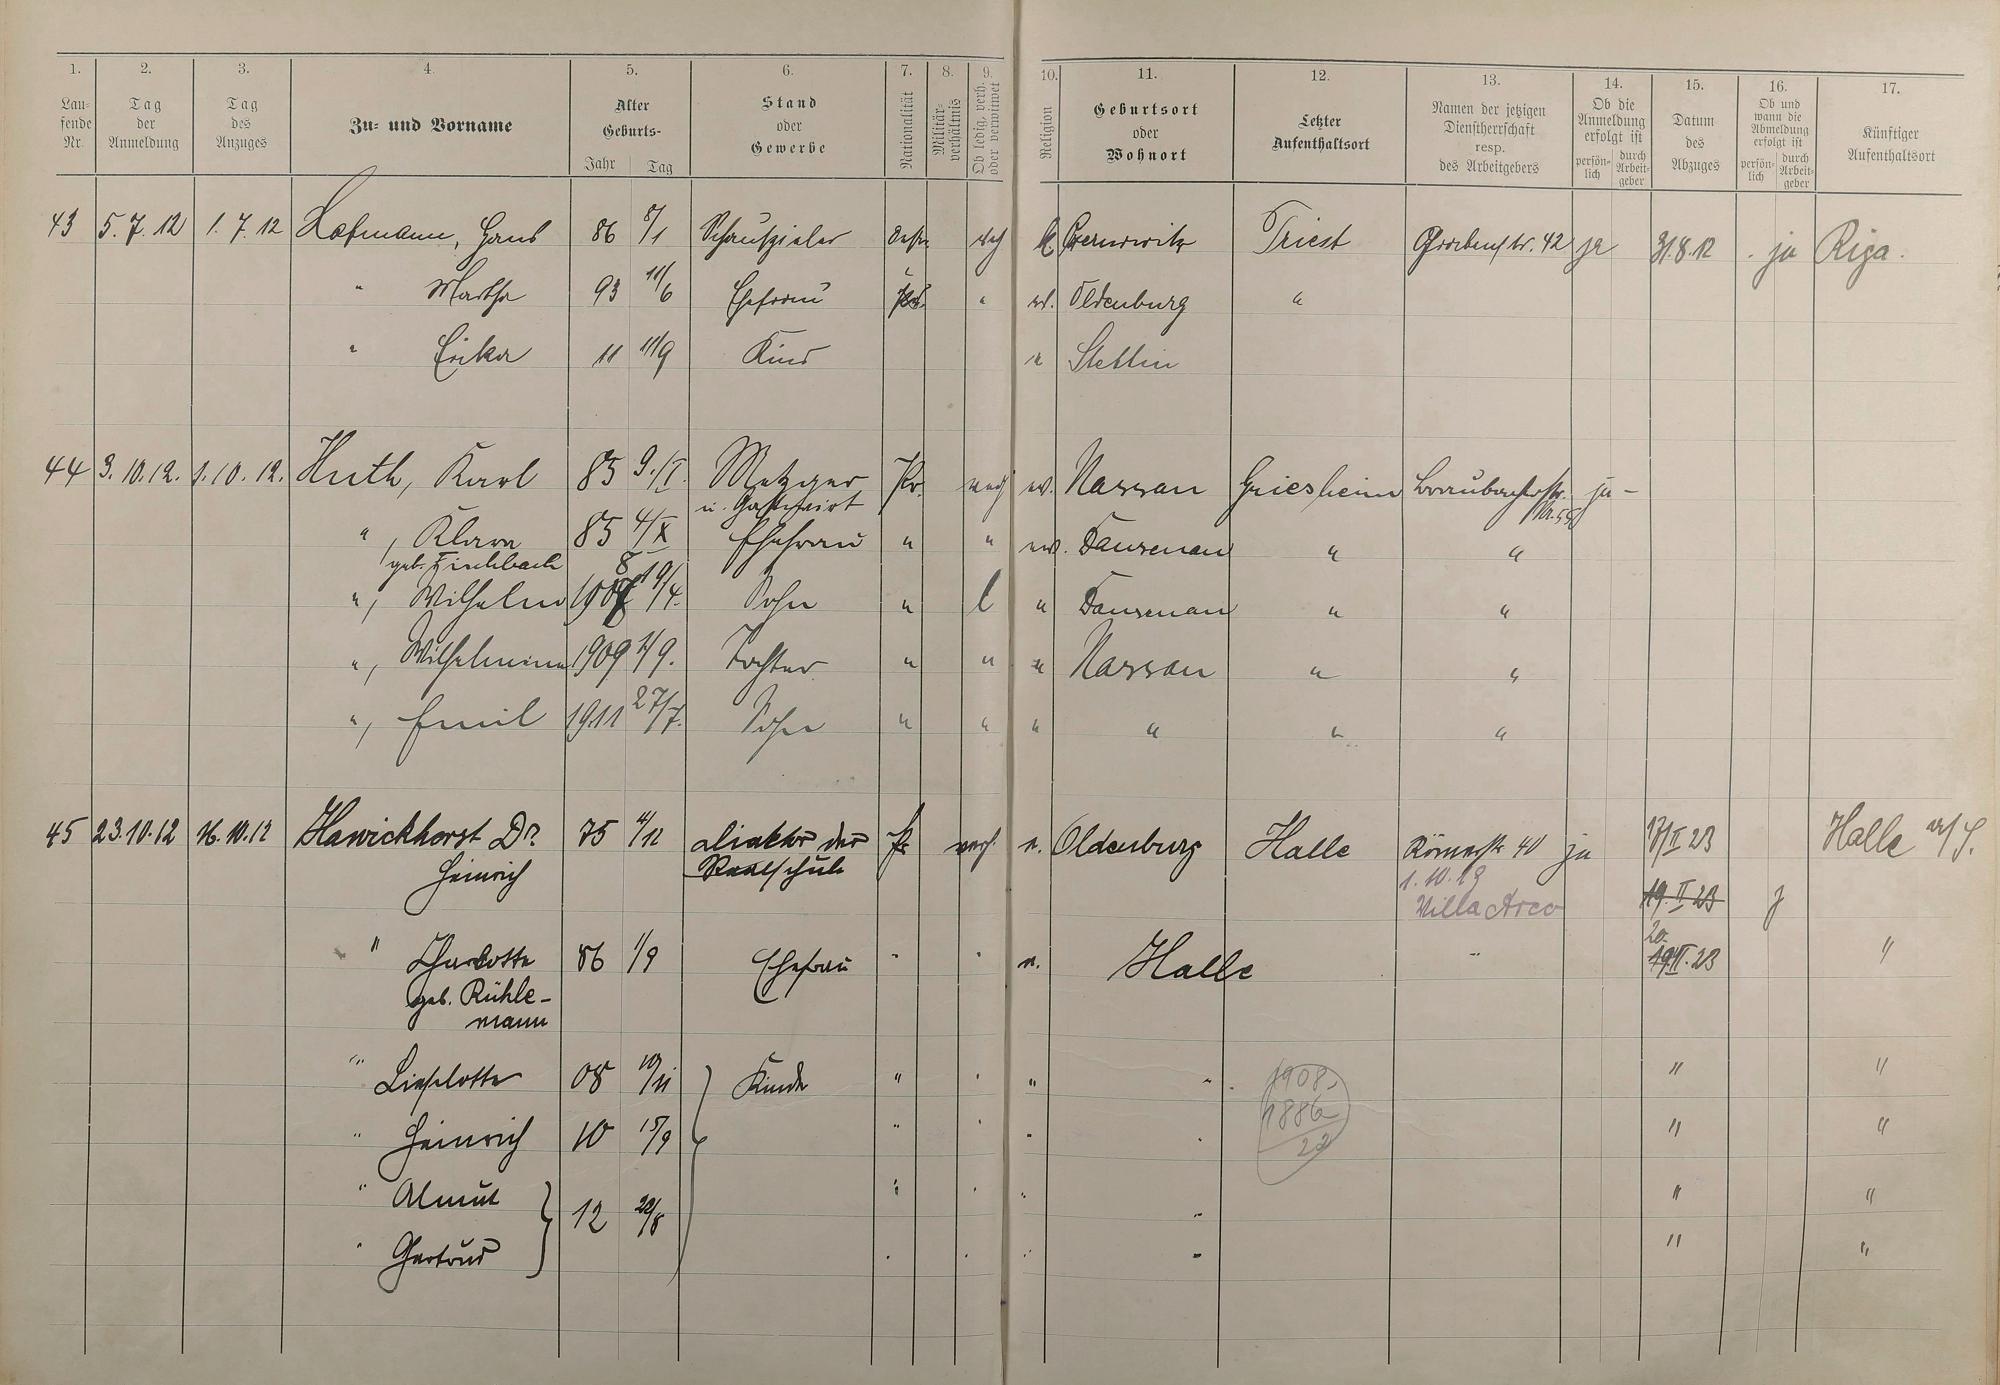 1. 2. 3. 4. 5. 6. 7. 8. 9. 10. 11. 12. 13. 14. 15. 16. 17.
Laufende Nr.
Tag der Anmeldung
Tag des Anzuges
Zu- und Vorname
Alter Geburts-
Jahr Tag
Stand oder Gewerbe
Nationalität
Militärverhältnis
Ob ledig, verh. oder verwitwet
Religion
Geburtsort oder Wohnort
Letzter Aufenthaltsort
Namen der jetzigen Dienstherrschaft resp. des Arbeitgebers
Ob die Anmeldung erfolgt ist
persönlich durch Arbeitgeber
Datum des Abzuges
Ob und wann die Abmeldung erfolgt ist
persönlich durch Arbeitgeber
Künftiger Aufenthaltsort
43 5.7.12 1.7.12 Hofmann, Hans 86 8/1 Schauspieler verh k. Czernowitz Triest 42 ja 31.8.12 ja Riga.
" Martha 93 11/6 Ehefrau " ev. Oldenburg "
" Erika 11 11/9 Kind " Stettin
44 3.10.12. 1.10.12. Huth, Karl 85 9./I. Metzger Pr. verh ev. Nassau Griesheim ja -
u. Gastwirt
", Klara 85 4/X Ehefrau " " ev. Dausenau " "
geb. Fischbach
", Wilhelm 1908 19/4. Sohn " l " Dausenau " "
", Wilhelmine 1909 2/9. Tochter " " " Nassau " "
", Emil 1911 27/7. Sohn " " " " " "
45 23.10.12 16.10.12 Hawickhorst Dr. 75 4/12 Direktor der Pr verh. e. Oldenburg Halle Römerstr 40 ja 17/II 23 Halle a/S.
Heinrich Realschule
1.10.19
Villa Arco 19.II 23 j
" Charlotte 86 1/9 Ehefrau " " e. Halle " 20. 19.II.23 "
geb. Rühle-
mann
" Lieselotte 08 10/11 Kinder " " " " 1908, " "
" Heinrich 10 15/9 " " " " 1886 " "
22
" Almut 12 22/8 " " " " " "
" Gertrud " " " " " "